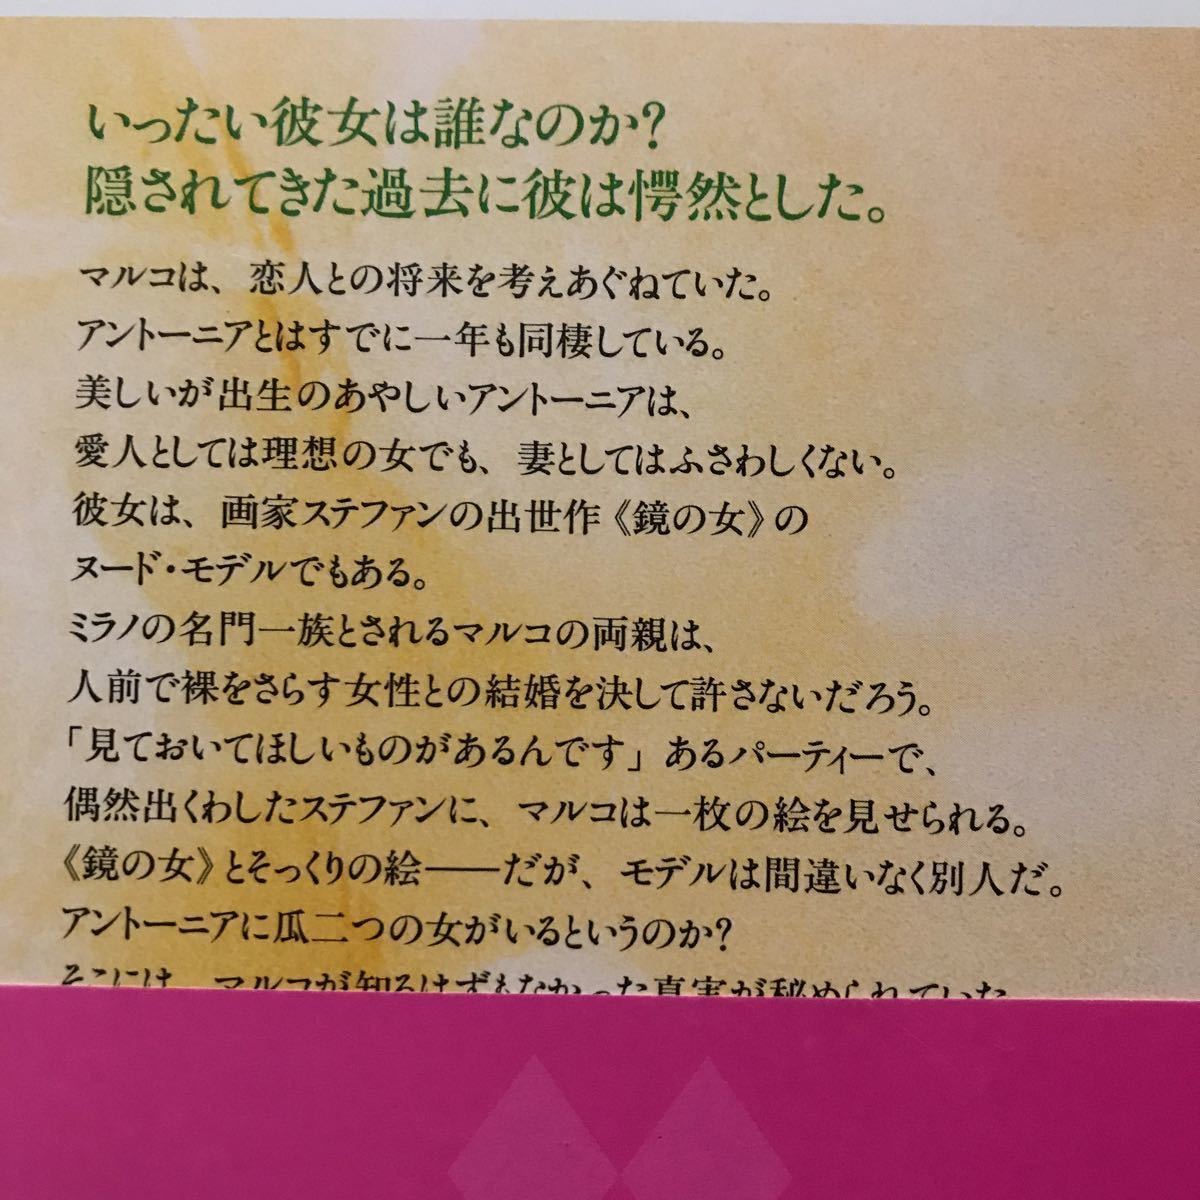 いったい彼女は誰なのか?
隠されてきた過去に彼は愕然とした。
マルコは、恋人との将来を考えあぐねていた。
アントーニアとはすでに一年も同棲している。
美しいが出生のあやしいアントーニアは、
愛人としては理想の女でも、妻としてはふさわしくない。
彼女は、画家ステファンの出世作《鏡の女》の
ヌード・モデルでもある。
ミラノの名門一族とされるマルコの両親は、
人前で裸をさらす女性との結婚を決して許さないだろう。
「見ておいてほしいものがあるんです」あるパーティーで、
偶然出くわしたステファンに、マルコは一枚の絵を見せられる。
《鏡の女》とそっくりの絵——だが、モデルは間違いなく別人だ。
アントーニアに瓜二つの女がいるというのか?
そこには、マルコが知るはずもなかった真実が秘められていた